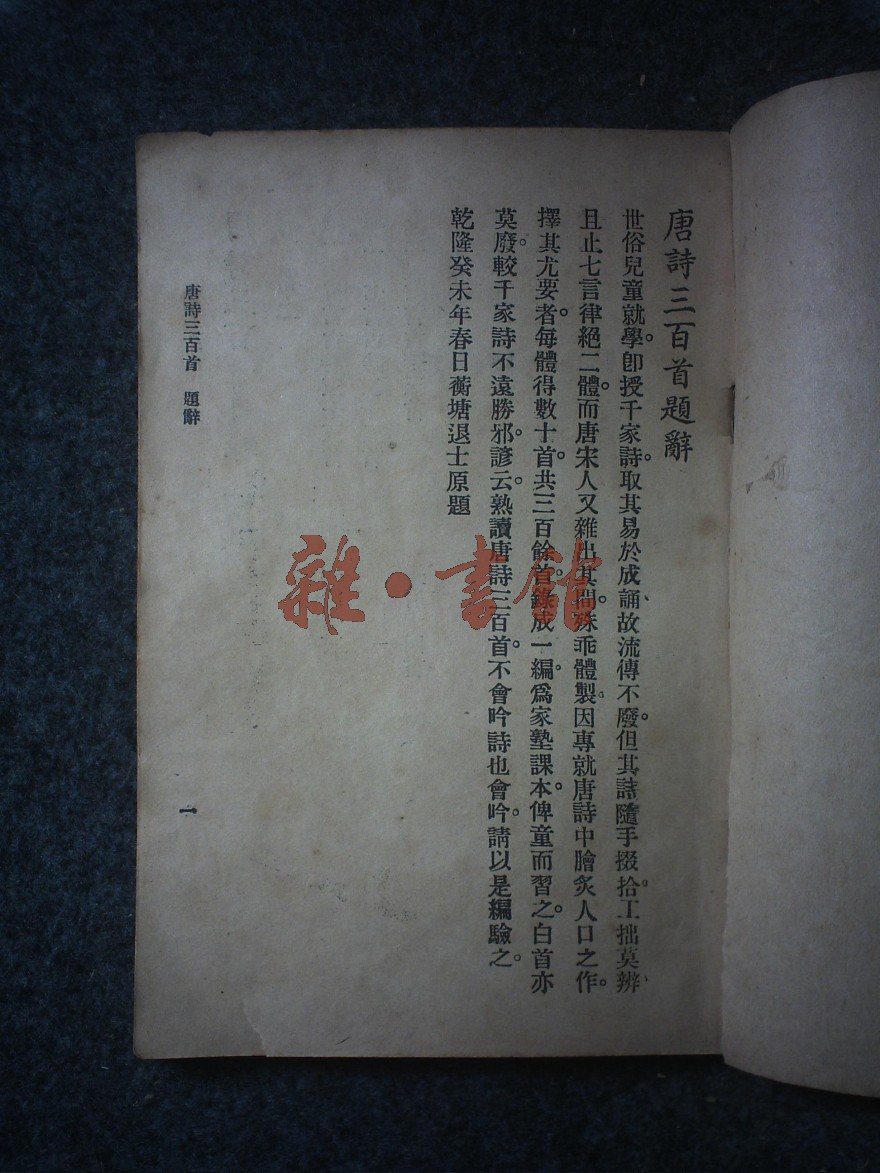 唐詩三百首題辭
世俗兒童就學。卽授千家詩。取其易於成誦、故流傳不廢。但其詩隨手掇拾。工拙莫辨、
且止七言律絕二體。而唐宋人又雜出其間。殊乖體製。因專就唐詩中膾炙人口之作。
擇其尤要者。每體得數十首。共三百餘首。錄成一編。爲家塾課本。俾童而習之。白首亦
莫廢。較千家詩不遠勝邪。諺云。熟讀唐詩三百首。不會吟詩也會吟。請以是編驗之。
乾隆癸未年春日蘅塘退士原題
唐詩三百首 題辭
一
雜·書館